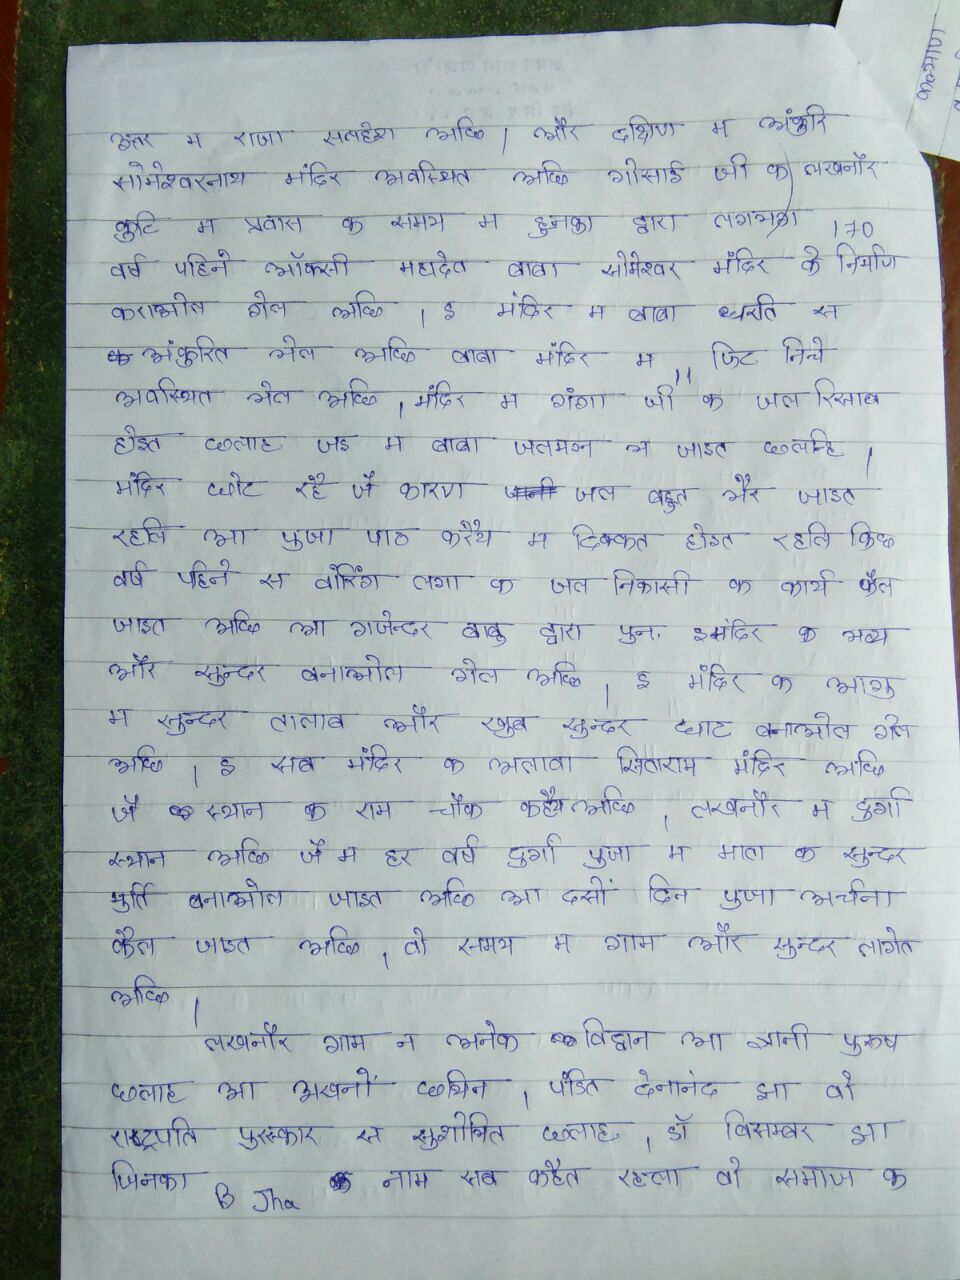 उत्तर म राजा सलहेश अछि, और दक्षिण म अंकुरि
सोमेश्वरनाथ मंदिर अवस्थित अछि गोसाई जी क लखनौर
कुटि म प्रवास क समय म हुनका द्वारा लगभग 170
वर्ष पहिने ऑकसी महादेव बाबा सोमेश्वर मंदिर के निर्माण
कराओल गेल अछि, इ मंदिर म बाबा धरति स
अंकुरित भेल अछि बाबा मंदिर म 11 फिट निचे
अवस्थित भेल अछि, मंदिर म गंगा जी क जल रिसाब
होइत छलाह जइ म बाबा जलमग्न भ जाइत छलन्हि,
मंदिर छोट रहै जै कारण जल बहुत भैर जाइत
रहलि आ पुजा पाठ करैय म दिक्कत होइत रहलि किछ
वर्ष पहिने स बोरिंग लगा क जल निकासी क कार्य कैल
जाइत अछि आ गजेन्दर बाबु द्वारा पुन. इमंदिर क भव्य
और सुन्दर बनाओल गेल अछि, इ मंदिर क आगु
म सुन्दर तालाब और खुब सुन्दर घाट बनाओल गेल
अछि, इ सब मंदिर क अलावा सिताराम मंदिर अछि
जै स्थान क राम चौक कहैय अछि, लखनौर म दुर्गा
स्थान अछि जै म हर वर्ष दुर्गा पुजा म माता क सुन्दर
मुर्ति बनाओल जाइत अछि आ दसों दिन पुजा अर्चना
कैल जाइत अछि, वो समय म गाम और सुन्दर लागेत
अछि,
लखनौर गाम न अनेक विद्वान आ ज्ञानी पुरुष
छलाह आ अखनों छथिन, पंडित देनानंद झा वो
राष्ट्रपति पुरस्कार स सुशोभित छलाह, डॉ बिसम्बर झा
जिनका B Jha क नाम सब कहैत रहला वो समाज क